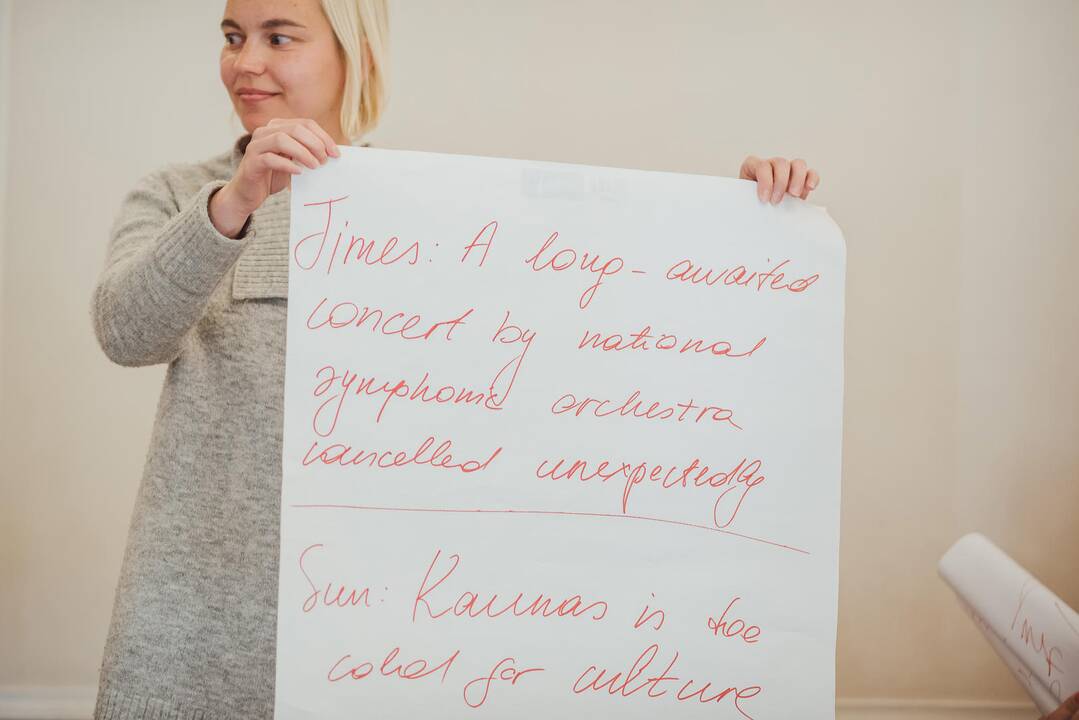 Times: A long-awaited
concert by national
symphonic orchestra
cancelled unexpectedly
Sun: Kaunas is too
cold for culture